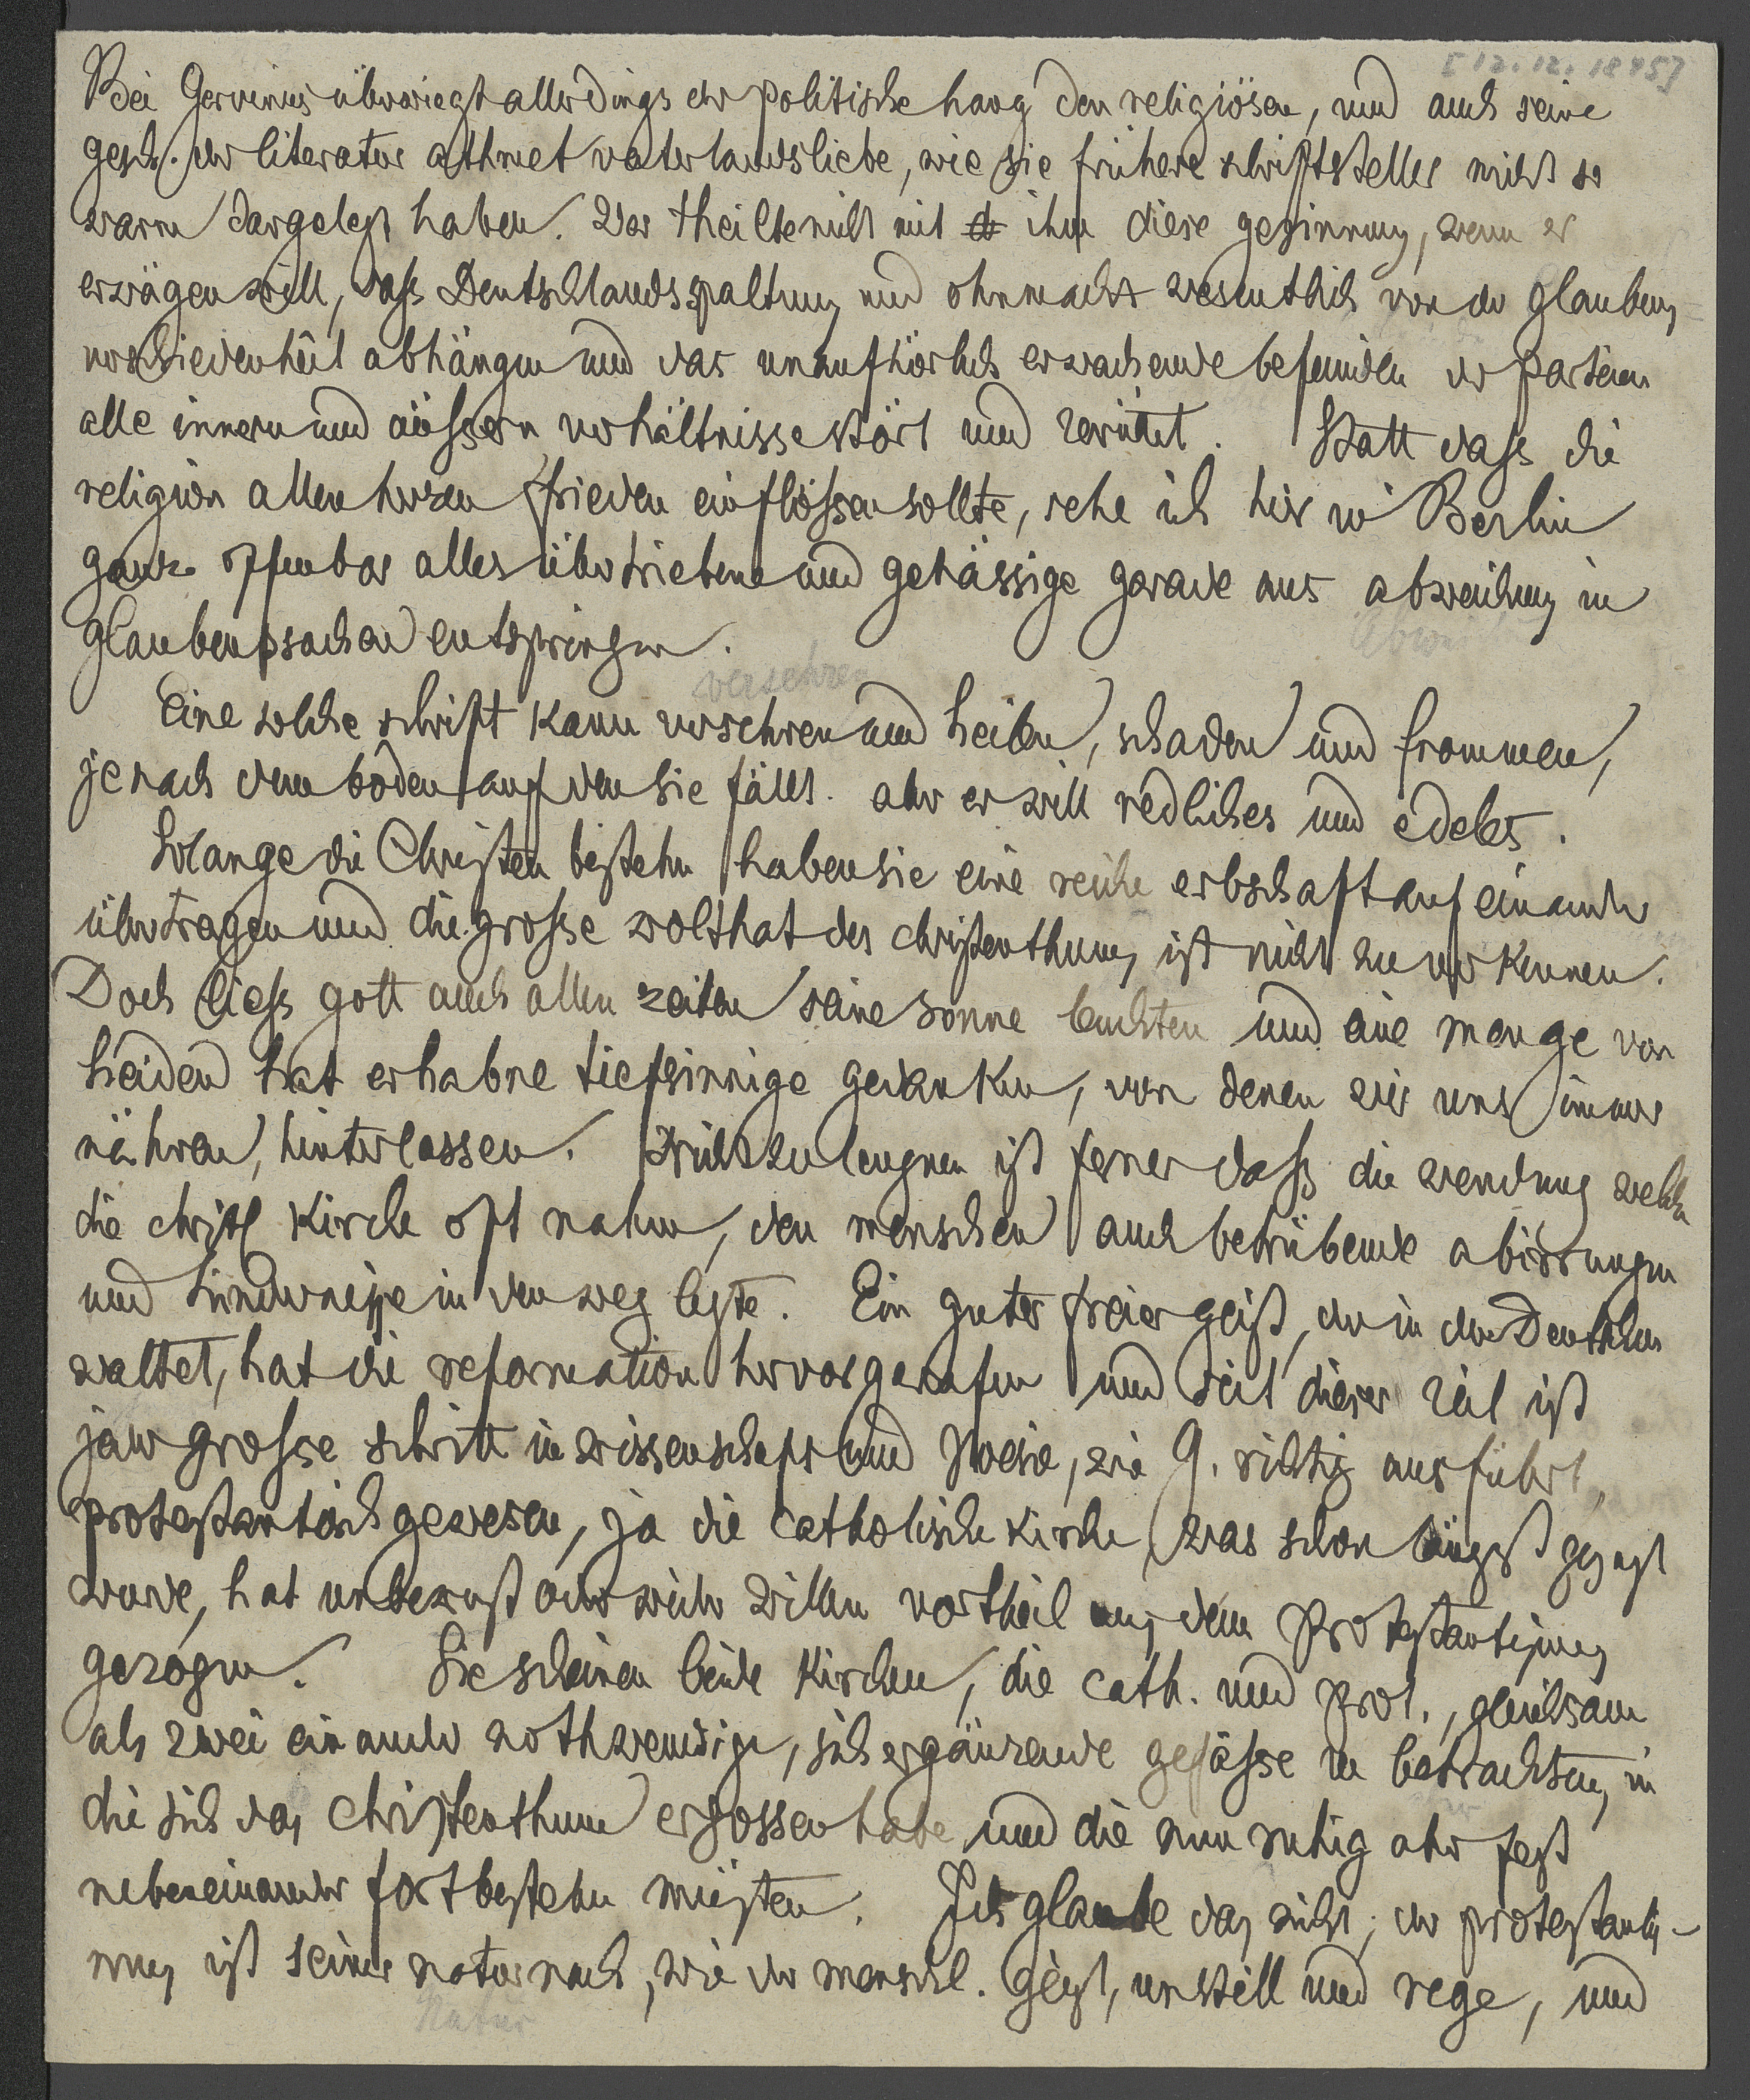 [12.12.1845]
Bei Gervinus überwiegt allerdings der politische hang den religiösen, und auch seine
gesch. der literatur athmet vaterlandsliebe, wie sie frühere schriftsteller nicht so
warm dargelegt haben. Wer theilte nicht mit ihm diese gesinnung, wenn er
erwägen will, dass Deutschlands spaltung und ohnmacht wesentlich von der glaubens-
verschiedenheit abhängen und das unaufhörlich erwachende befeinden der parteien
alle innern und äussern verhältnisse stört und zerrüttet. Statt dass die
religion allen herzen frieden einflössen sollte, sehe ich hier in Berlin
ganz offenbar alles übertriebene und gehässige gerade aus abweichung in
glaubenssachen entspringen.
versehren
Eine solche schrift kann versehren und heilen, schaden und frommen,
je nach dem boden auf den sie fällt. aber er will redliches und edeles.
Solange die Christen bestehn haben sie eine reiche erbschaft auf einander
übertragen und die grosse wolthat des christenthums ist nicht zu verkennen.
Doch liess gott auch allen zeiten seine sonne leuchten und eine menge von
heiden hat erhabne tiefsinnige gedanken, von denen wir uns immer
nähren, hinterlassen. Nicht zu leugnen ist ferner dass die wendung welche
die christl kirche oft nahm, den menschen auch betrübende abirrungen
und hindernisse in den weg legte. Ein guter freier geist, der in den Deutschen
waltet, hat die reformation hervorgerufen und seit dieser zeit ist
jeder grosse schritt in wissenschaft und poesie, wie G. richtig ausführt,
protestantisch gewesen, ja die catholische kirche, was schon längst gesagt
wurde, hat unbewust oder wider willen vortheil aus dem Protestantismus
gezogen. Sie scheinen beide kirchen, die cath. und prot., gleichsam
als zwei einander nothwendige, sich ergänzende gefässe zu betrachten, in
die sich das christenthum ergossen habe und die nun ruhig aber fest
nebeneinander fortbestehn müsten. Ich glaube das nicht; der protestantis-
mus ist seiner natur nach, wie der menschl. geist, unstill und rege, und
Natur